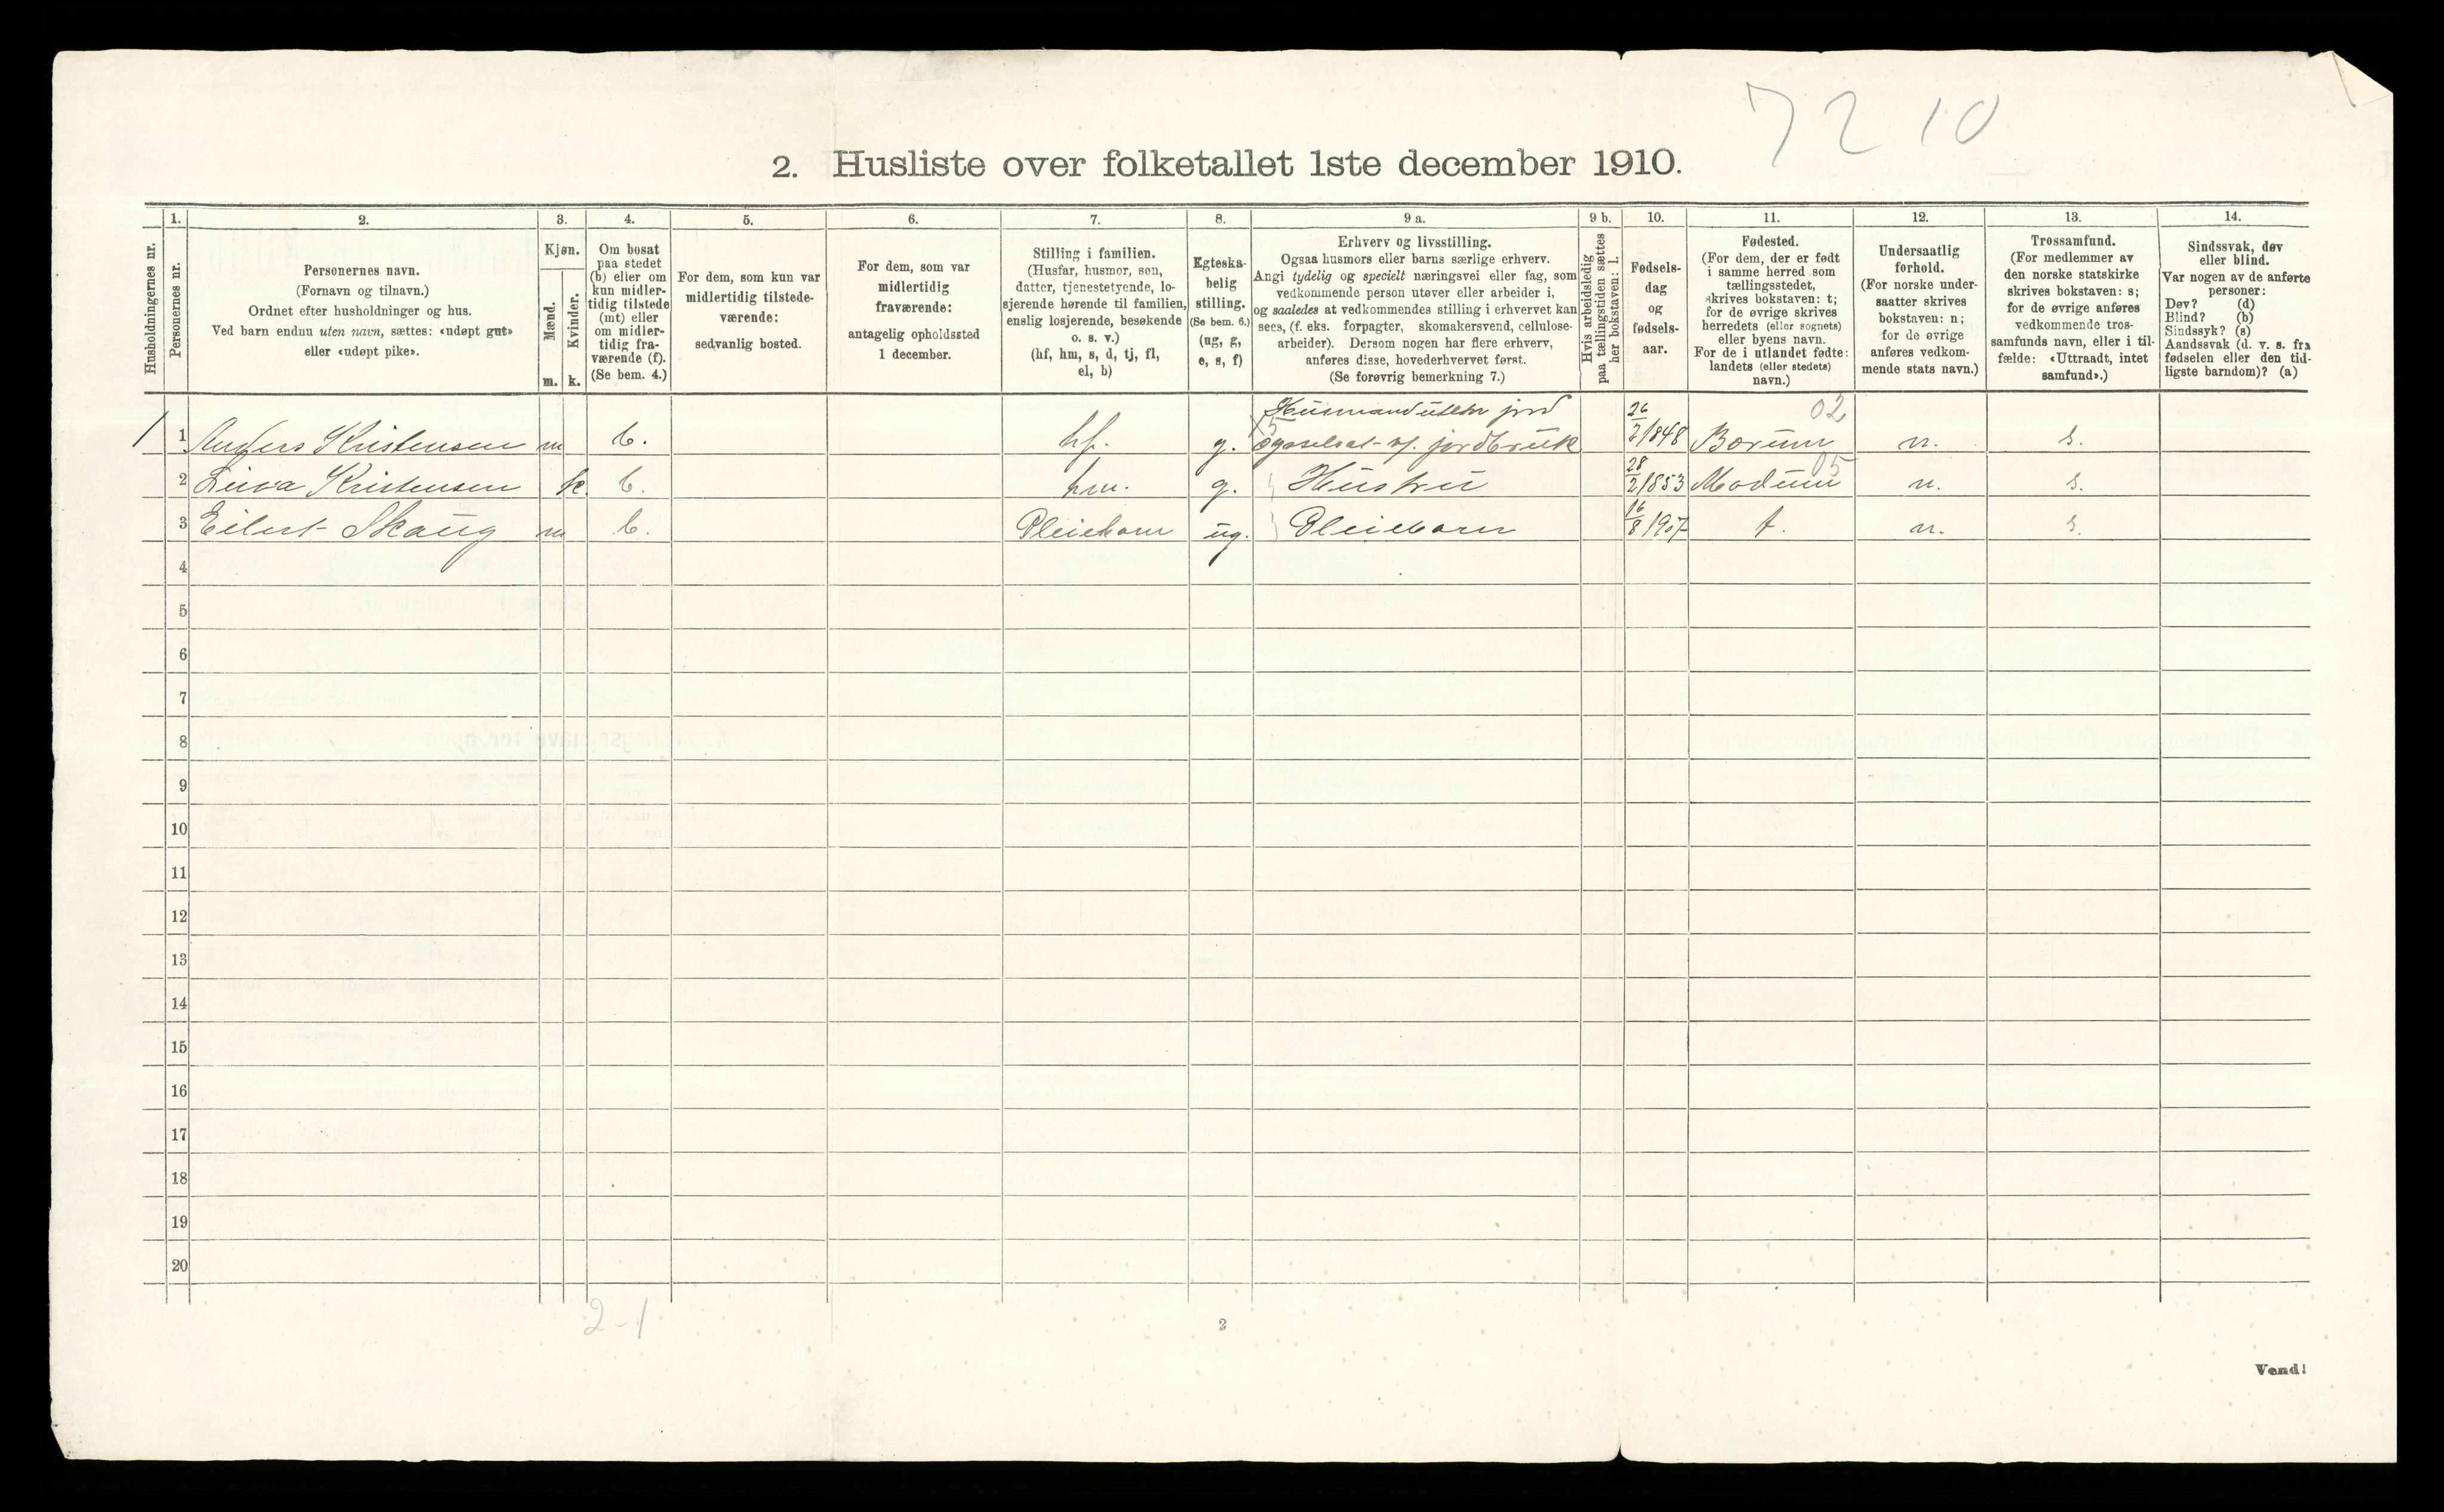 7210
2. Husliste over folketallet 1ste december 1910.
Husholdningernes nr.
1.
Personernes nr.
2.
Personernes navn.
(Fornavn og tilnavn.)
Ordnet efter husholdninger og hus.
Ved barn endnu uten navn, sættes: «udøpt gut»
eller «udøpt pike».
3.
Kjøn.
Mænd.
m.
Kvinder.
k.
4.
Om bosat
paa stedet
(b) eller om
kun midler-
tidig tilstede
(mt) eller
om midler-
tidig fra-
værende (f).
(Se bem. 4.)
5.
For dem, som kun var
midlertidig tilstede-
værende:
sedvanlig bosted.
6.
For dem, som var
midlertidig
fraværende:
antagelig opholdssted
1 december.
7.
Stilling i familien.
(Husfar, husmor, søn,
datter, tjenestetyende, lo-
sjerende hørende til familien,
enslig losjerende, besøkende
o. s. v.)
(hf, hm, s, d, tj, fl,
el, b)
8.
Egteska-
belig
stilling.
(Se bem. 6.)
(ug, g,
e, s, f)
9 a.
Erhverv og livsstilling.
Ogsaa husmors eller barns særlige erhverv.
Angi tydelig og specielt næringsvei eller fag, som
vedkommende person utøver eller arbeider i,
og saaledes at vedkommendes stilling i erhvervet kan
sees, (f. eks. forpagter, skomakersvend, cellulose-
arbeider). Dersom nogen har flere erhverv,
anføres disse, hovederhvervet først.
(Se forøvrig bemerkning 7.)
9 b.
Hvis arbeidsledig
paa tællingstiden sættes
her bokstaven: l.
10.
Fødsels-
dag
og
fødsels-
aar.
11.
Fødested.
(For dem, der er født
i samme herred som
tællingsstedet,
skrives bokstaven: t;
for de øvrige skrives
herredets (eller sognets)
eller byens navn.
For de i utlandet fødte:
landets (eller stedets)
navn.)
12.
Undersaatlig
forhold.
(For norske under-
saatter skrives
bokstaven: n;
for de øvrige
anføres vedkom-
mende stats navn.)
13.
Trossamfund.
(For medlemmer av
den norske statskirke
skrives bokstaven: s;
for de øvrige anføres
vedkommende tros-
samfunds navn, eller i til-
fælde: «Uttraadt, intet
samfund».)
14.
Sindssvak, døv
eller blind.
Var nogen av de anførte
personer:
Døv? (d)
Blind? (b)
Sindssyk? (s)
Aandssvak (d. v. s. fra
fødselen eller den tid-
ligste barndom)? (a)
Husmand uten jord 02
1 1 Anders Kristensen m b. hf. g. jordbruk 26/2 1848 Borum n. s.
2 Kristensen k. b. hm. g. Hustru 28/2 1853 Modum 05 n. s.
3 Eilert Skaug m b. Pleiebarn ug. Pleiebarn 16/8 1907 t. n. s.
4
5
6
7
8
9
10
11
12
13
14
15
16
17
18
19
20
2-1
2
Vend!